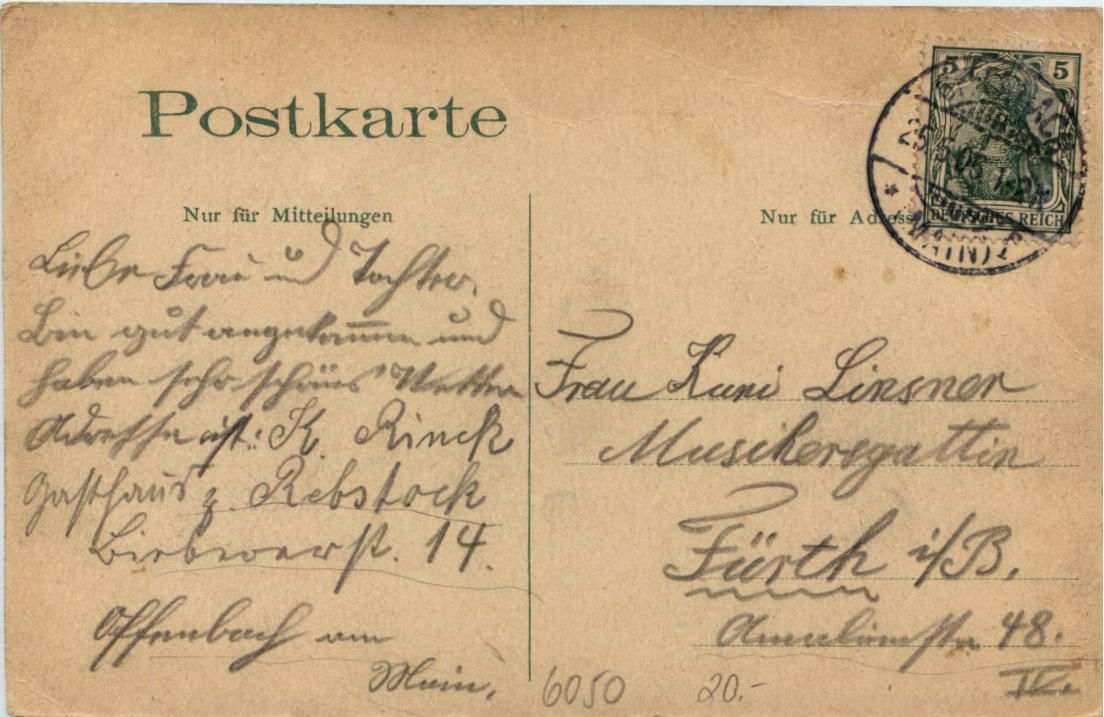 Postkarte
Nur für Mitteilungen
Liebe Frau und Tochter.
Bin gut angekommen und
haben sehr schönes Wetter
Adresse ist: K. Rinck
Gasthaus z. Rebstock
14.
Offenbach am
Main.
Nur für Adresse
5 5
DEUTSCHES REICH
(MAIN)
Frau Kuni Linsner
Musikersgattin
Fürth i/B.
Amalienstr. 48.
IV.
6050 20.-